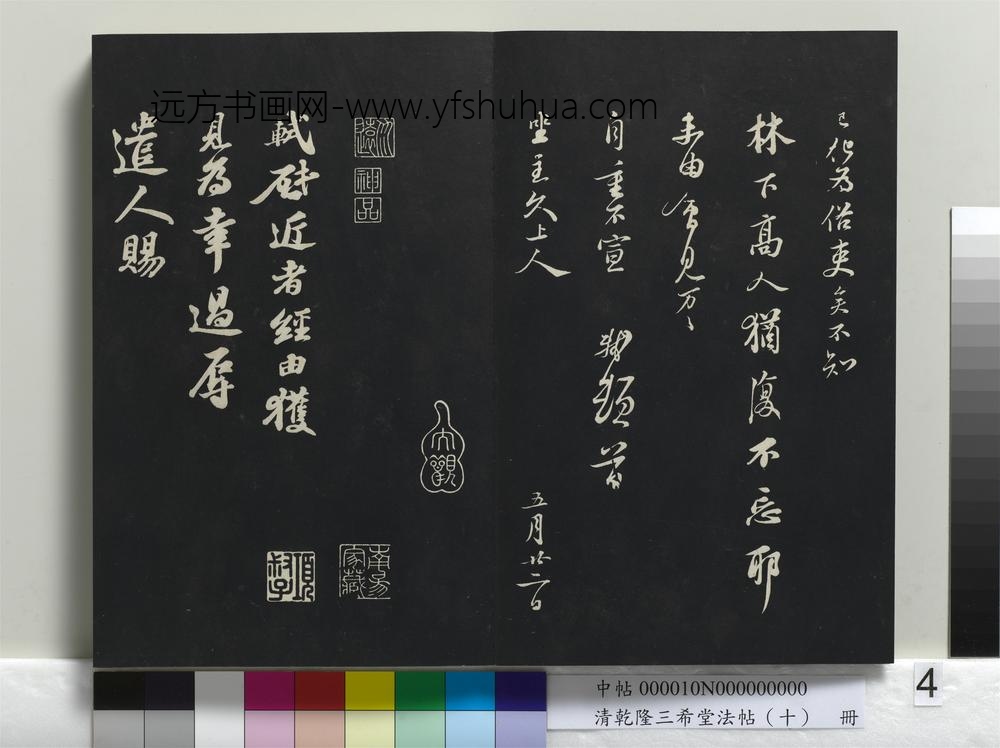 远方书画网-www.yfshuhua.com
已化為俗吏矣不知
林下高人猶復不忘耶
未由會見万〻
自重不宣 軾頓首
坐主久上人 五月廿二日
神品
大觀
軾啟近者經由獲
見為幸過辱
遣人賜
中帖 000010N000000000
清乾隆三希堂法帖（十） 冊
4